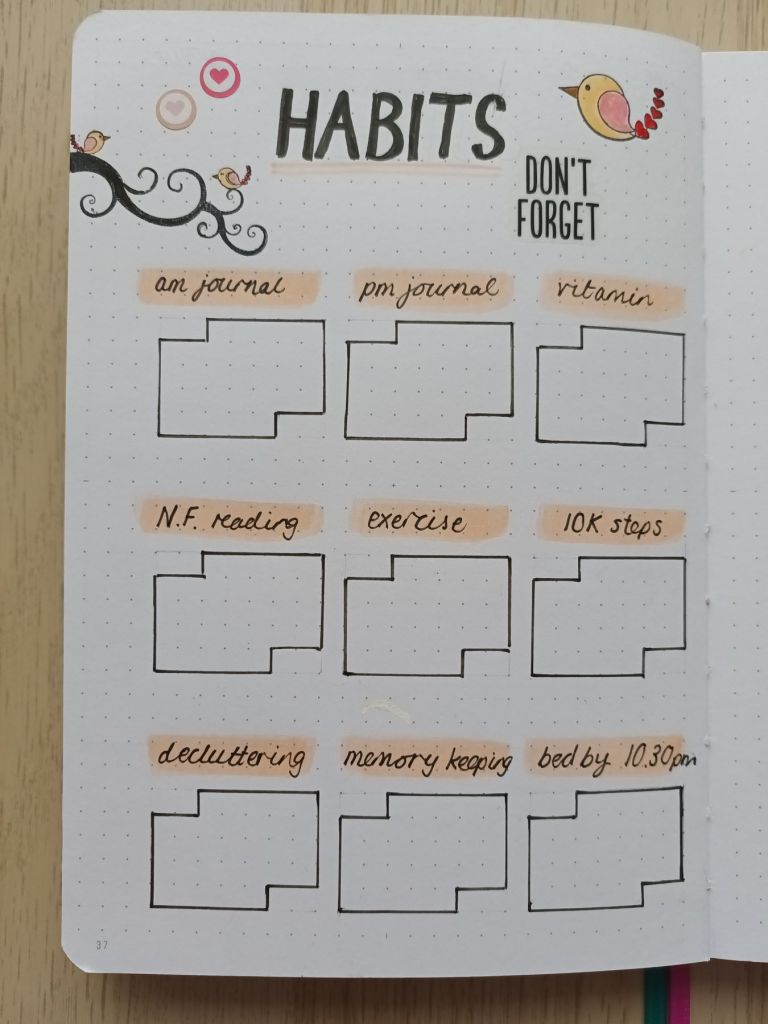 HABITS
DON'T
FORGET
am journal
pm journal
vitamin
N.F. reading
exercise
10K steps
decluttering
memory keeping
bed by 10.30pm
37